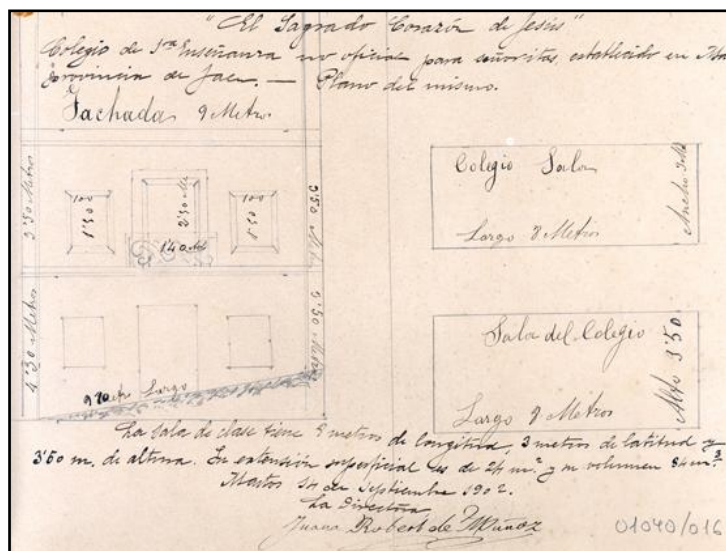 "El Sagrado Corazón de Jesús"
Colegio de 1ra Enseñanza no oficial para señoritas, establecido en
provincia de Jaen. — Plano del mismo.
Fachada 9 Metros
3'50 Metros
100
1'50
2'50 M
1'40 M
100
1'50
3'50 M
4'30 Metros
3'50 Metros
Metro Largo
Colegio Sala
Largo 8 Metros
Ancho 3 M
Sala del Colegio
Largo 8 Metros
Alto 3'50
La sala de clase tiene 8 metros de longitud, 3 metros de latitud y
3'50 m. de altura. Su extensión superficial es de 24 m.² y su volumen 84 m.³
Martos de Septiembre 1902.
La Directora
Juana Robert de Muñoz
01040/016